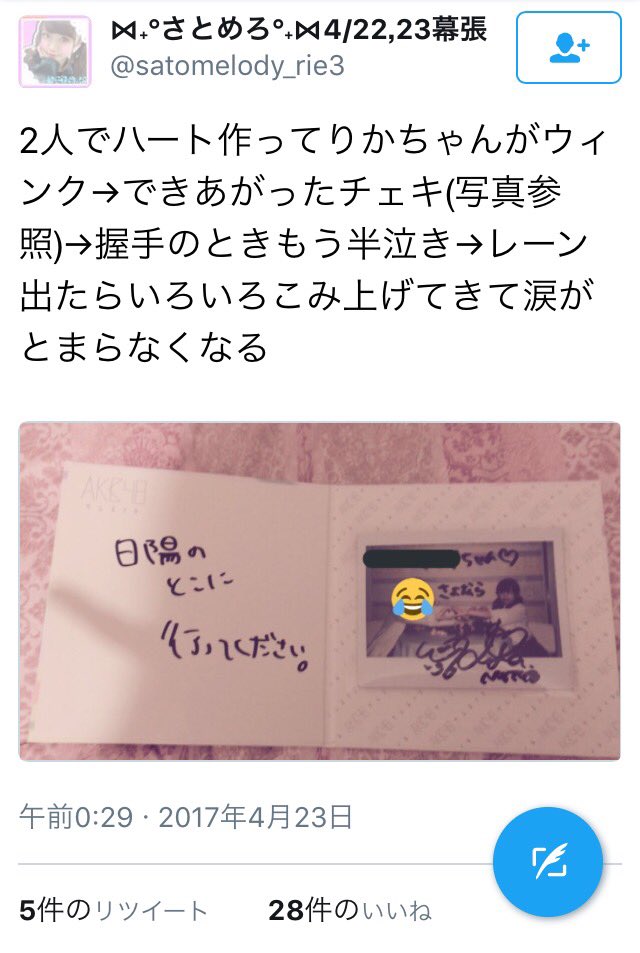 ⋈₊°さとめろ°₊⋈4/22,23幕張
@satomelody_rie3
2人でハート作ってりかちゃんがウィ
ンク→できあがったチェキ(写真参
照)→握手のときもう半泣き→レーン
出たらいろいろこみ上げてきて涙が
とまらなくなる
AKB48
日陽の
とこに
行ってください。
ちゃん♡
さよなら
午前0:29 · 2017年4月23日
5件のリツイート 28件のいいね